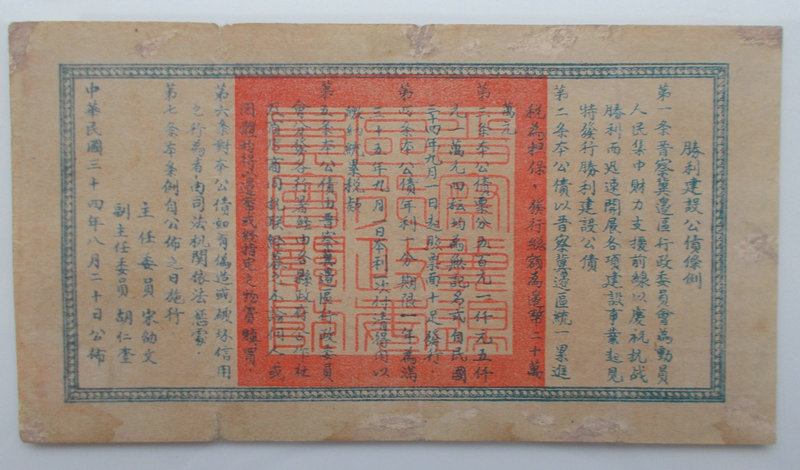 勝利建設公債條例
第一条晋察冀邊區行政委員會為動員
人民集中財力支援前線以慶祝抗战
勝利而迅速開展各項建設事業起見
特發行勝利建設公債
第二条本公債以晋察冀邊區統一累進
税為担保，發行總額為邊幣二十萬
萬元
第三条本公債票分五百元一仟元五仟
元一萬元四種均為無記名式自民國
三十四年九月一日起照票面十足發行
第四条本公債年利一分期限一年為滿
三十五年九月一日本利 付清 得以
繳納統累税款
第五条本公債由晋察冀邊區行政委員
會 發各行署 由各縣政府合作社
商店 個人或
團體均得以邊幣或 指定之物資購買
第六条對本公債如有偽造或破坏信用
之行為者由司法机関依法懲處
第七条本条例自公佈之日施行
主任委員 宋劭文
副主任委員 胡仁奎
中華民國三十四年八月二十日公佈